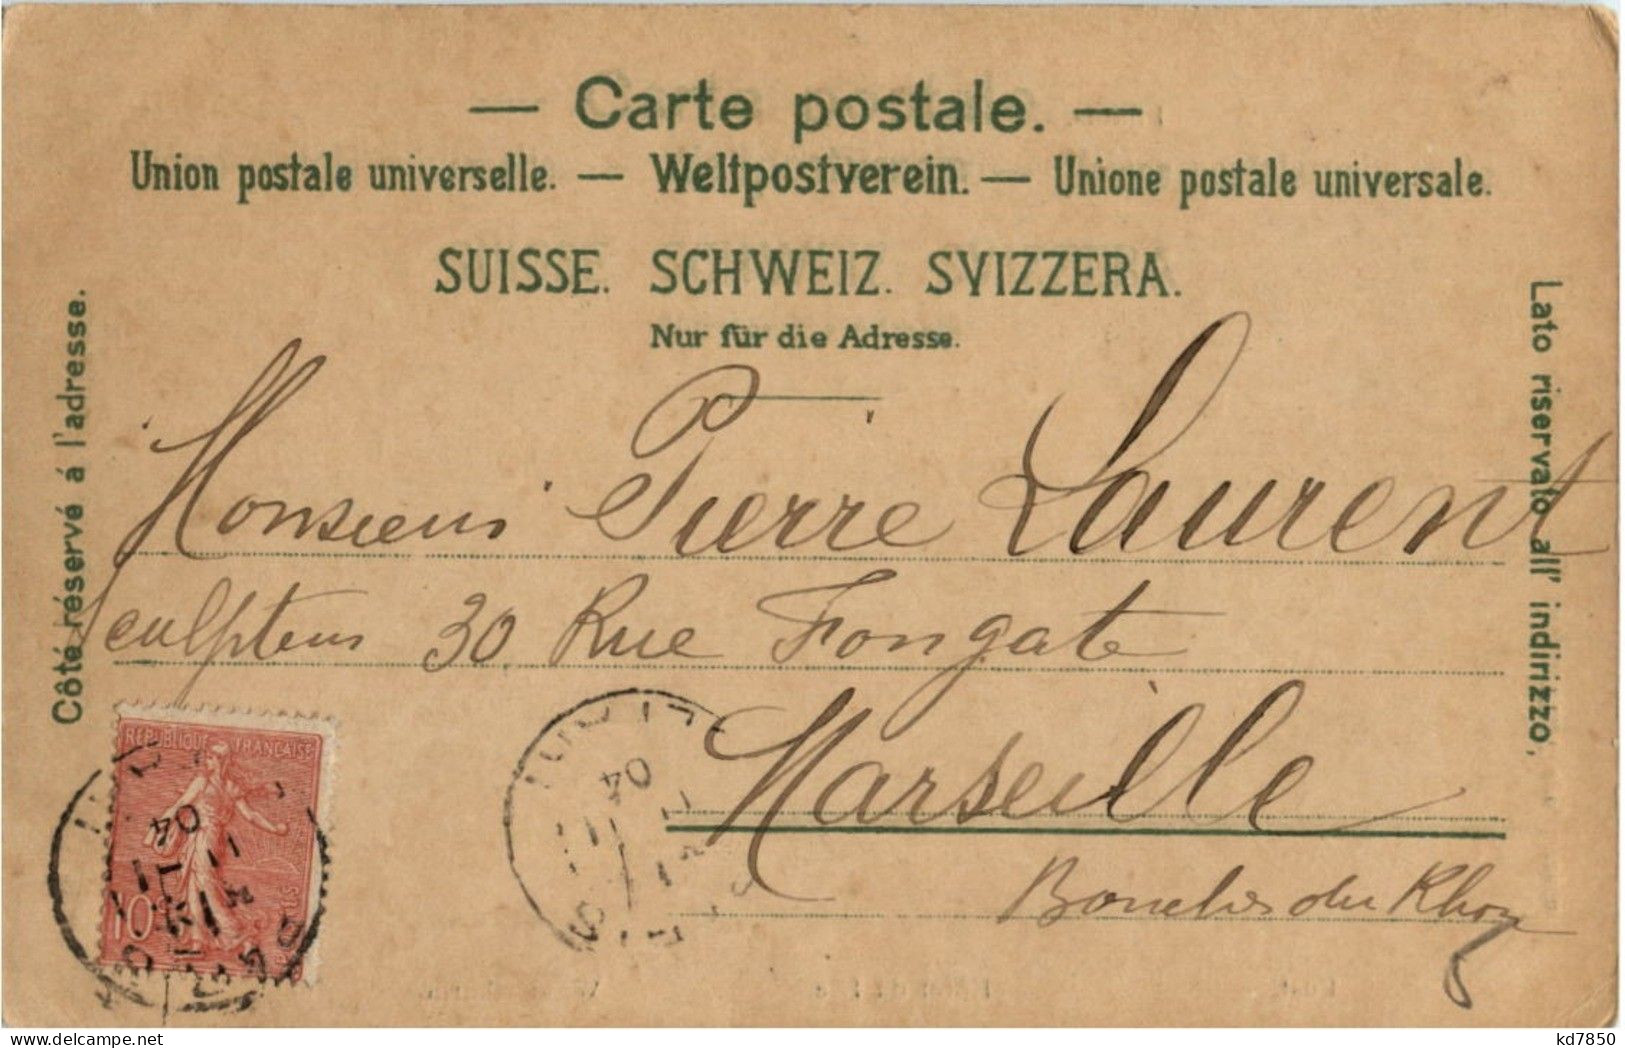 — Carte postale. —
Union postale universelle. — Weltpostverein. — Unione postale universale.
SUISSE. SCHWEIZ. SVIZZERA.
Nur für die Adresse.
Côté réservé á l'adresse.
Lato riservato all' indirizzo.
Monsieur Pierre Laurent
Sculpteur 30 Rue Fongate
Marseille
Bouches du Rhône
REPUBLIQUE FRANÇAISE
10
04
04
www.delcampe.net
kd7850